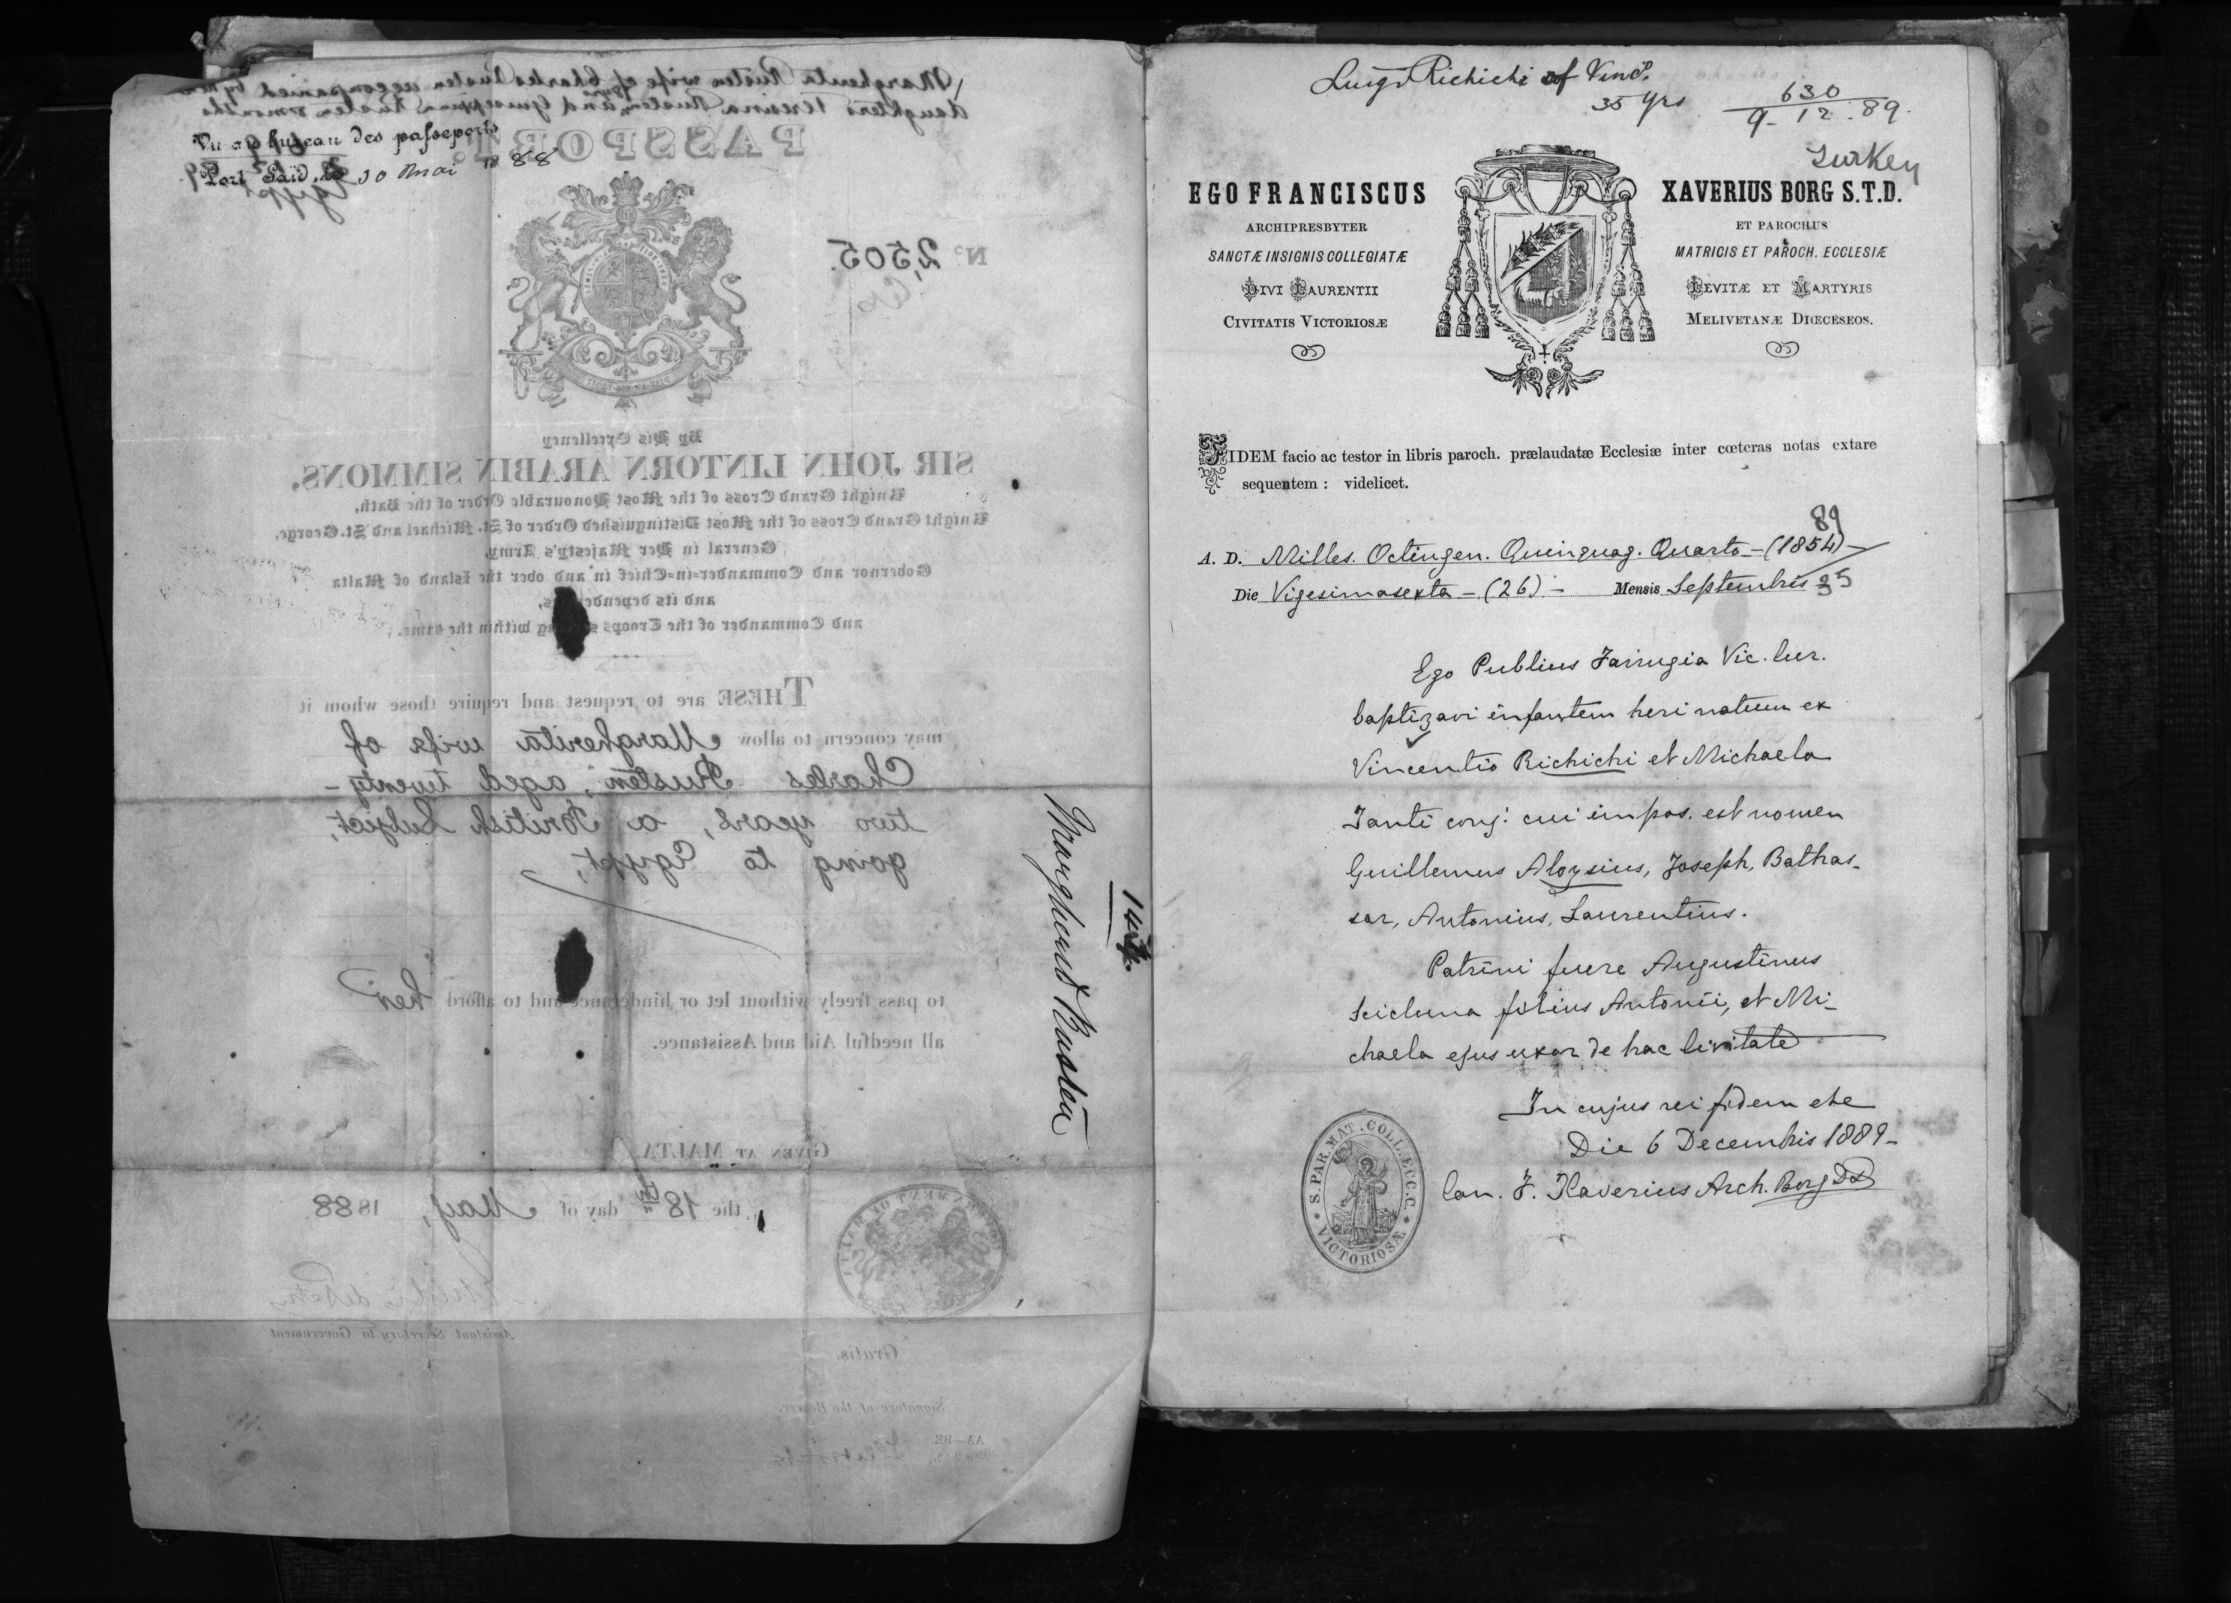 Vu au bureau des passeports
Port Saïd, le 30 Mai 1888
Margherita Busten wife of Charles Busten accompanied by her
daughters Teresina Busten and Giuseppina Busten 8 months
Egypt
PASSPORT.
No 2,505.
By His Excellency
SIR JOHN LINTORN ARABIN SIMMONS,
Knight Grand Cross of the Most Honourable Order of the Bath,
Knight Grand Cross of the Most Distinguished Order of St. Michael and St. George,
General in Her Majesty's Army,
Governor and Commander-in-Chief in and over the Island of Malta
and its dependencies,
and Commander of the Troops serving within the same.
THESE are to request and require those whom it
may concern to allow Margherita wife of
Charles Busten, aged twenty-
two years, a British Subject,
going to Egypt,
to pass freely without let or hinderance and to afford her
all needful Aid and Assistance.
GIVEN AT MALTA,
the 18th day of May, 1888
Assistant Secretary to Government
Gratis
Signature of the Bearer.
Margherita Busten
147.
Luigi Richichi of Vinc.
35 yrs
630
9-12.89.
Turkey
EGO FRANCISCUS XAVERIUS BORG S.T.D.
ARCHIPRESBYTER ET PAROCHUS
SANCTÆ INSIGNIS COLLEGIATÆ MATRICIS ET PAROCH. ECCLESIÆ
DIVI LAURENTII LEVITÆ ET MARTYRIS
CIVITATIS VICTORIOSÆ MELIVETANÆ DIŒCESEOS.
FIDEM facio ac testor in libris paroch. prælaudatæ Ecclesiæ inter cœteras notas extare
sequentem : videlicet.
89
A. D. Milles. Octingen. Quinquag. Quarto - (1854) -
Die Vigesimasexta - (26) - Mensis Septembris 35
Ego Publius Farrugia Vic. Cur.
baptizavi infantem heri natum ex
Vincentio Richichi et Michaela
Janti conj: cui impos. est nomen
Guillemus Aloysius, Joseph, Balthas-
sar, Antonius, Laurentius.
Patrini fuere Augustinus
Scicluna filius Antonii, et Mi-
chaela ejus uxor de hac Civitate
In cujus rei fidem etc
Die 6 Decembris 1889-
Can. F. Xaverius Arch. Borg
S. PAR. MAT. COLL. ECC. C. VICTORIOSÆ